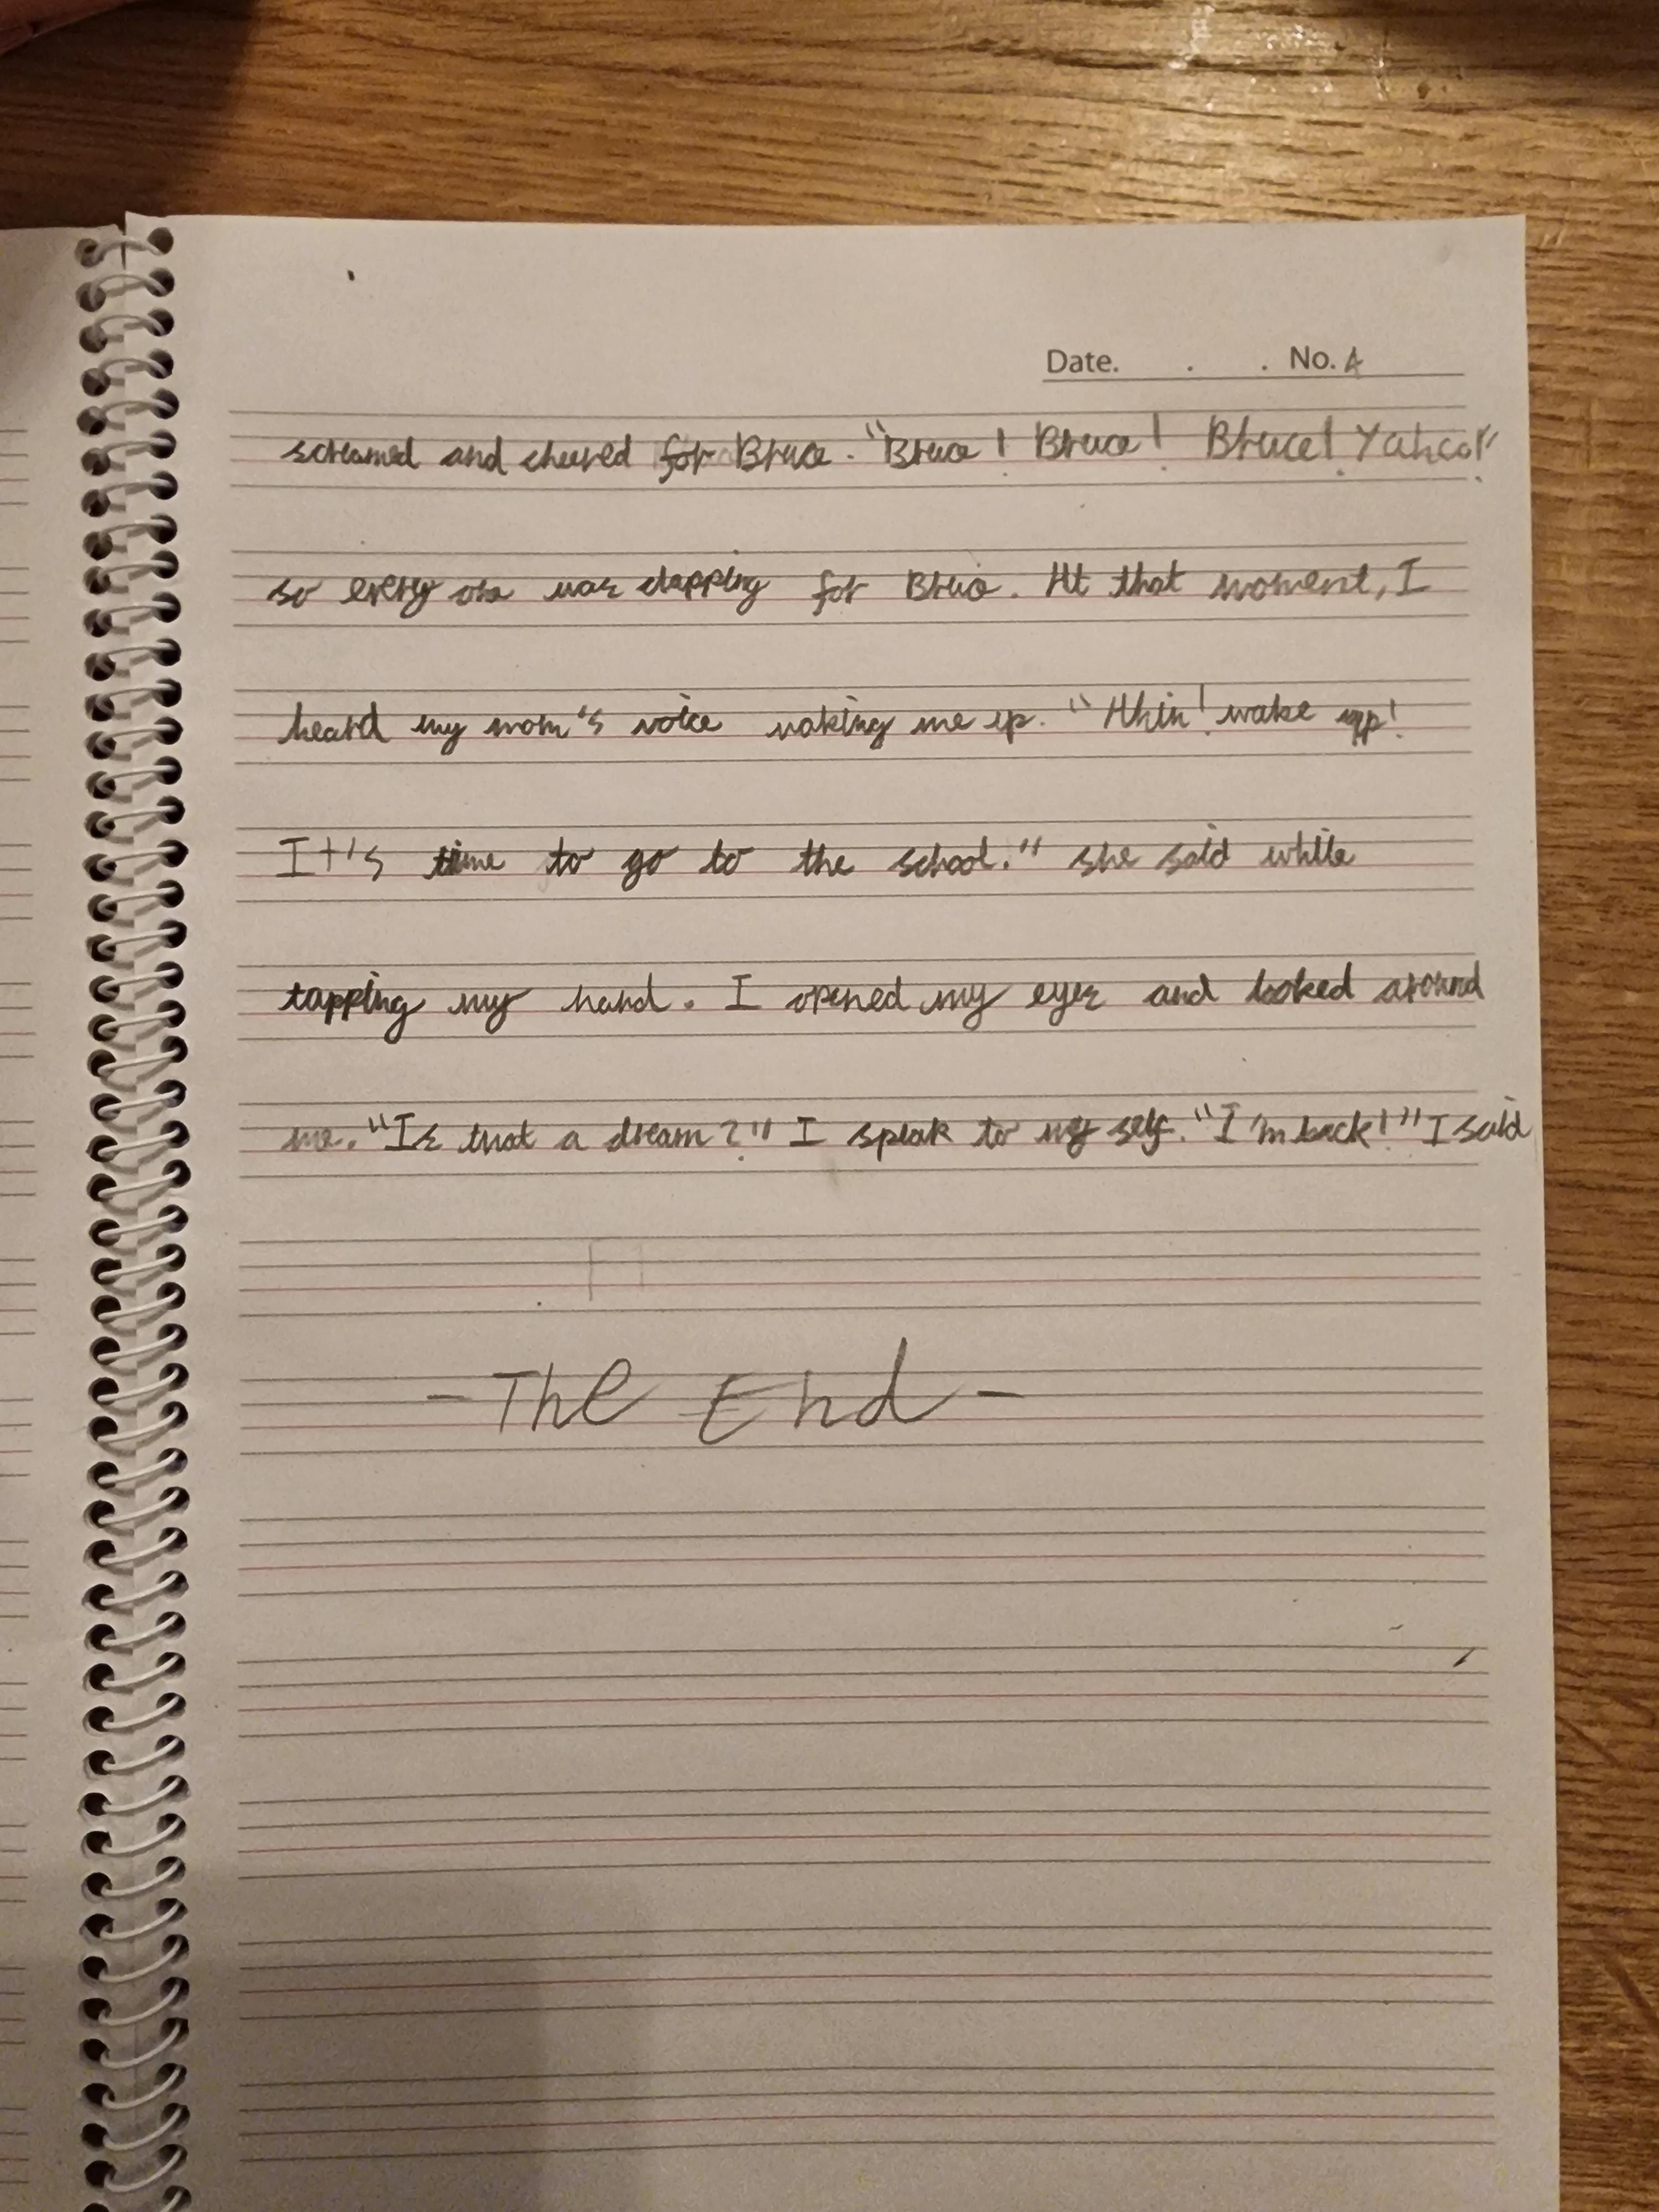 Date. . . No. 4
screamed and cheered for Bruce. "Bruce! Bruce! Bruce! Yahoo!"
so every one was clapping for Bruce. At that moment, I
heard my mom's voice waking me up. "Ahin! wake up!
It's time to go to the school." she said while
tapping my hand. I opened my eyes and looked around
me. "Is that a dream?" I speak to my self. "I'm back!" I said
- The End -